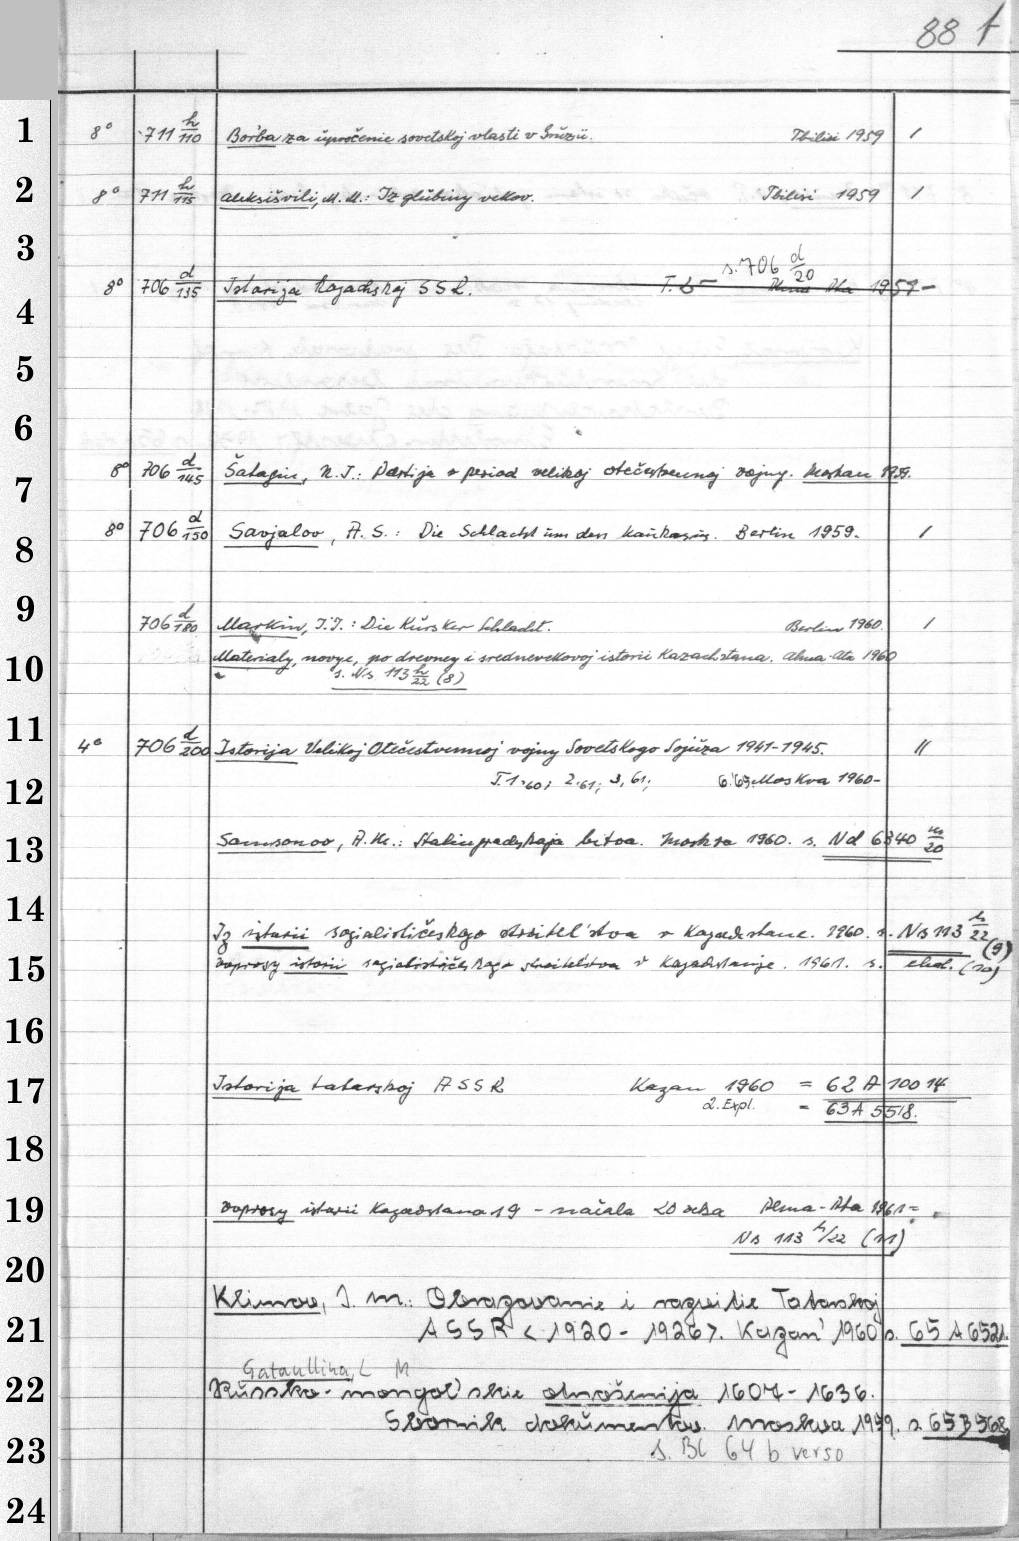 88 f
1 8° 711 h/110 Bor'ba za upročenie sovetskoj vlasti v Grŭzii. Tbilisi 1959 /
2 8° 711 h/115 Aleksišvili, M. M.: Iz glŭbiny vekov. Tbilisi 1959 /
3 s. 706 d/20
8° 706 d/135 Istorija Kazachskoj SSR. T. Alma Ata 1957-
4
5
6
7 8° 706 d/145 Šatagin, N. I.: Partija v period velikoj otečestvennoj vojny. Moskau 1959.
8 8° 706 d/150 Savjalov, A. S.: Die Schlacht ŭm den Kaŭkasŭs. Berlin 1959. /
9 706 d/180 Markin, I. I.: Die Kŭrsker Schlacht. Berlin 1960. /
10 Materialy, novye, po drevnej i srednevekovoj istorii Kazachstana. Alma-Ata 1960
s. Ns 113 h/22 (8)
11 4° 706 d/200 Istorija Velikoj Otečestvennoj vojny Sovetskogo Sojŭza 1941-1945. //
12 T. 1.60; 2.61; 3,61; 6.65. Moskva 1960-
13 Samsonov, A. M.: Stalingradskaja bitva. Moskva 1960. s. Nd 6340 m/20
14 Iz istorii socialističeskogo stroitel'stva v Kazachstane. 1960. s. Ns 113 h/22 (9)
15 Voprosy istorii socialističeskogo stroitel'stva v Kazachstanje. 1961. s. ebd. (10)
16
17 Istorija tatarskoj ASSR Kazan 1960 = 62 A 10014
2. Expl. = 63 A 5518.
18
19 Voprosy istorii Kazachstana 19 - načala 20 veka Alma-Ata 1961 =
Ns 113 h/22 (11)
20
Klimov, I. M.: Obrazovanie i razvitie Tatarskoj
21 ASSR <1920-1926>. Kazan' 1960 s. 65 A 6521.
Gataullina, L M
22 Rŭssko-mongol'skie otnošenija 1607-1636.
Sbornik dokŭmentov. Moskva 1959. s. 65 B 568
23 s. Bl 64 b verso
24